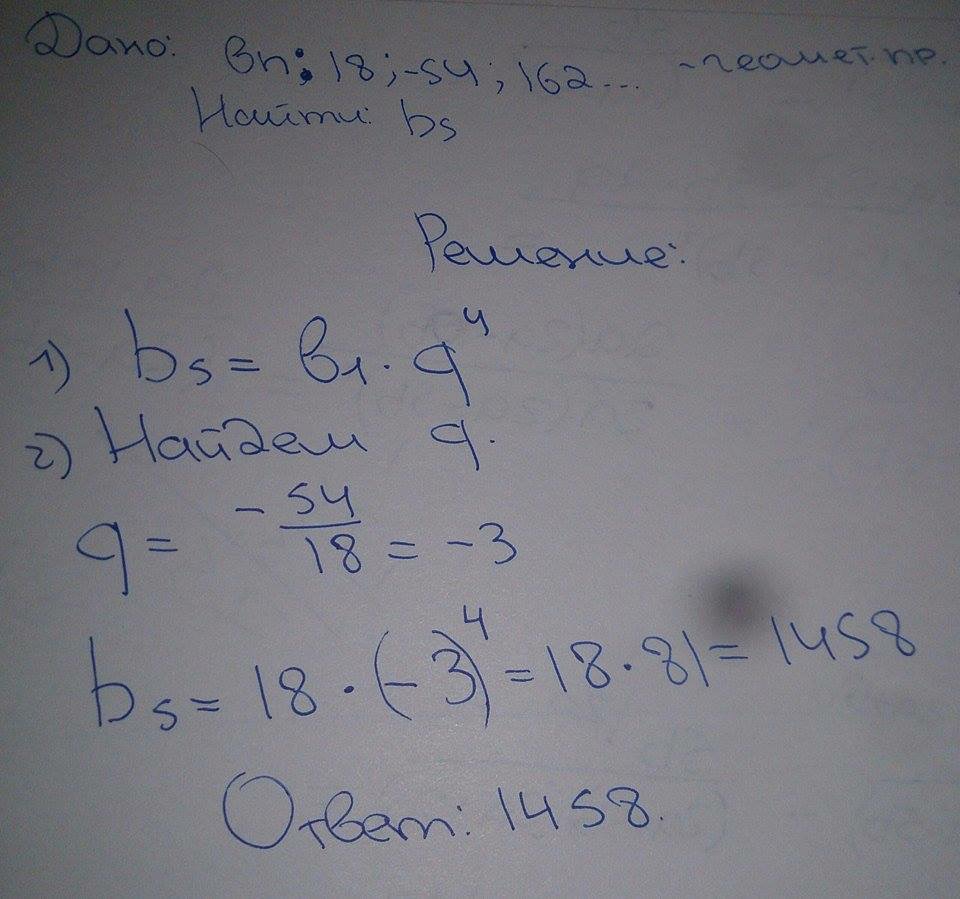 Дано: bn: 18; -54; 162... - геомет. пр.
Найти: b5
Решение:
1) b5 = b1 · q^4
2) Найдем q.
q = - 54/18 = -3
b5 = 18 · (-3)^4 = 18 · 81 = 1458
Ответ: 1458.